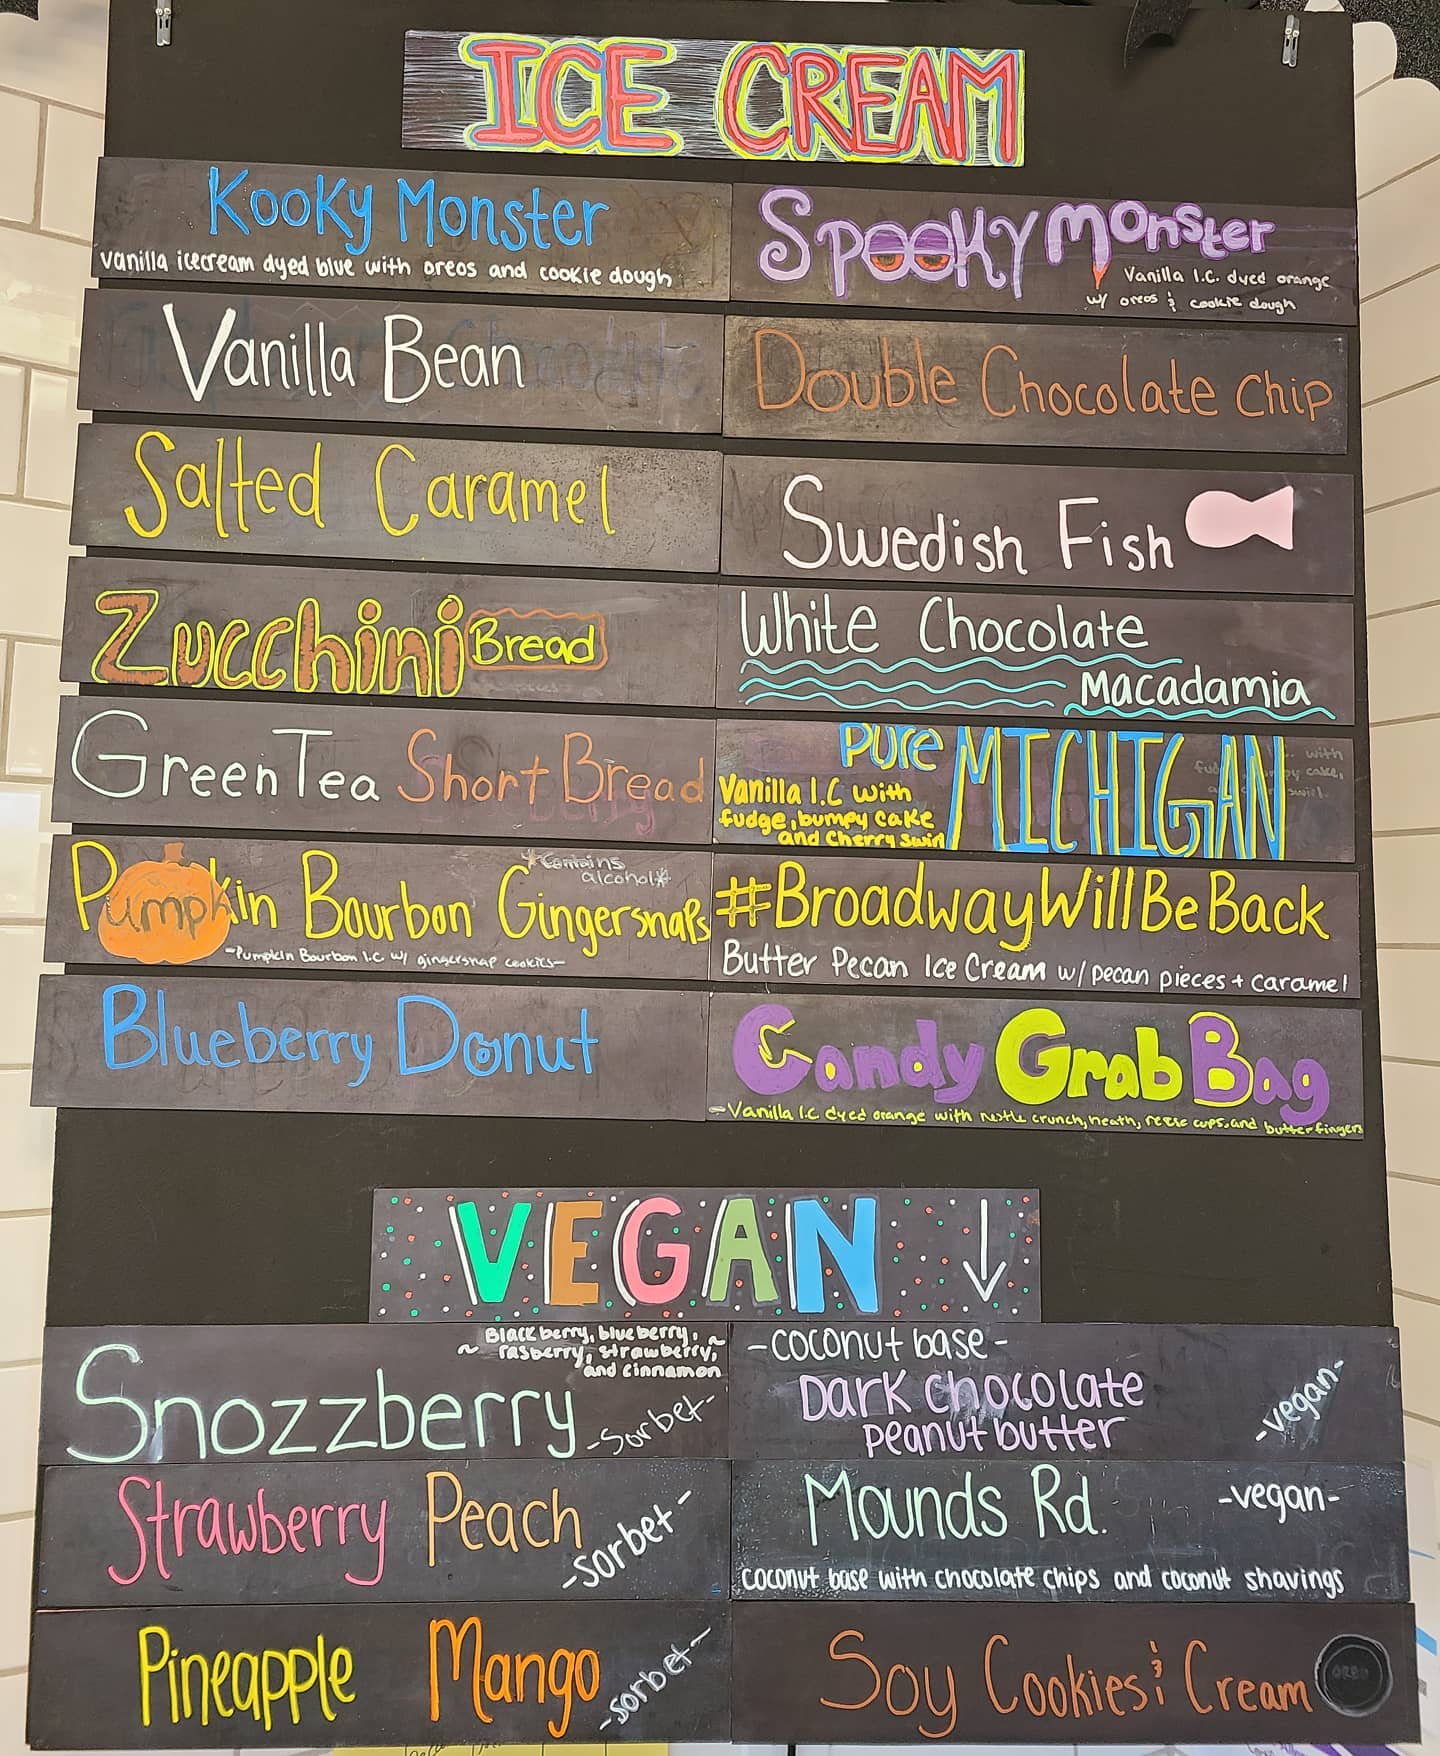 ICE CREAM
Kooky Monster
vanilla icecream dyed blue with oreos and cookie dough
Spooky Monster
Vanilla I.C. dyed orange
w/ oreos & cookie dough
Vanilla Bean
Double Chocolate Chip
Salted Caramel
Swedish Fish
Zucchini Bread
White Chocolate
Macadamia
Green Tea Short Bread
Pure MICHIGAN
Vanilla I.C with
fudge, bumpy cake
and Cherry Swirl
Pumpkin Bourbon Gingersnaps
*Contains
alcohol*
-Pumpkin Bourbon I.C w/ gingersnap cookies-
#BroadwayWillBeBack
Butter Pecan Ice Cream w/ pecan pieces + caramel
Blueberry Donut
Candy Grab Bag
-Vanilla I.C dyed orange with nestle crunch, heath, reese cups, and butterfingers
VEGAN ↓
Blackberry, blueberry, ~
~ rasberry, strawberry,
and cinnamon
Snozzberry -Sorbet-
-coconut base-
Dark Chocolate
peanut butter
-vegan-
Strawberry Peach
-sorbet-
Mounds Rd. -vegan-
coconut base with chocolate chips and coconut shavings
Pineapple Mango
-sorbet-
Soy Cookies & Cream
OREO